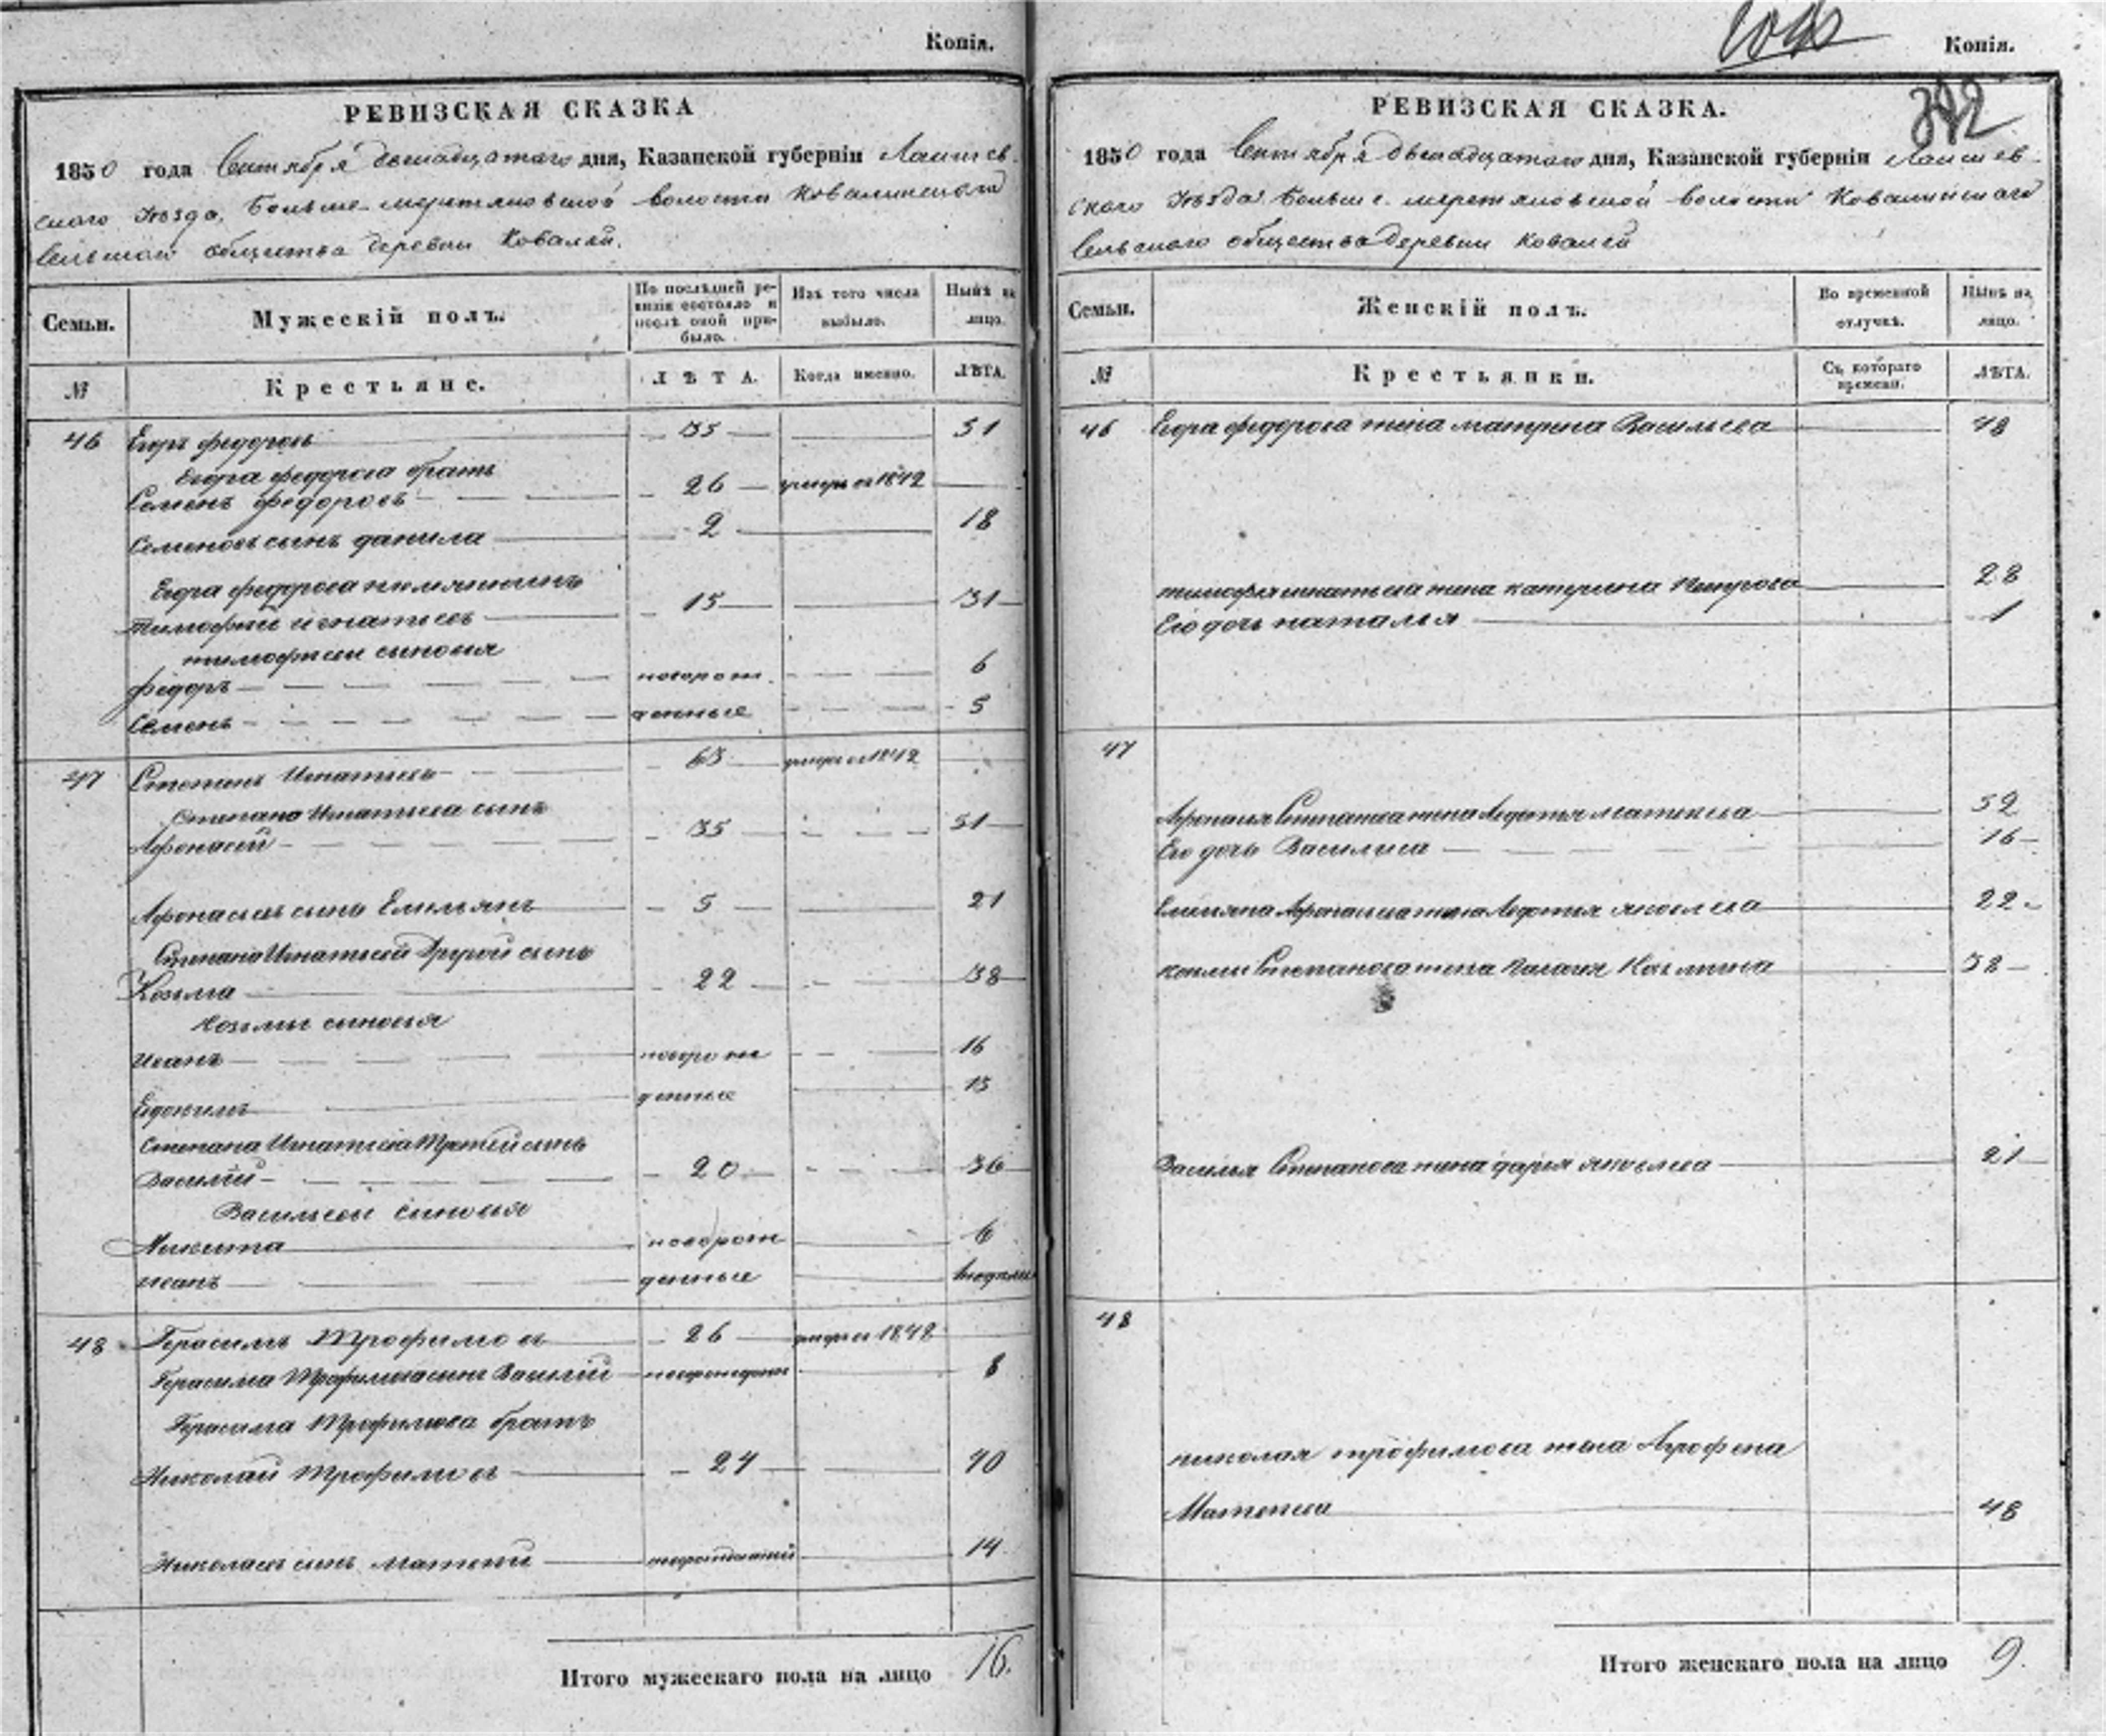 Копія.
РЕВИЗСКАЯ СКАЗКА
1850 года Сентября двенадцатого дня, Казанской губерніи Лаишев-
скаго Уезда, Больше-меретяковской волости Ковалинского
Сельского общества деревни Ковалей.
Семьи.
Мужескій полъ.
По послѣдней ре-
визіи состояло и
послѣ оной при-
было.
Изъ того числа
выбыло.
Нынѣ на
лицо.
№
Крестьяне.
ЛѢТА.
Когда именно.
ЛѢТА.
46 Егоръ федоровъ 35 51
Егора федорова братъ
Семенъ федоровъ 26 умеръ въ 1842
Семеновъ сынъ данила 2 18
Егора федорова племянникъ
тимофѣй игнатьевъ 15 31
тимофѣевы сыновья
федоръ новорож 6
Семенъ денные 5
47 Степанъ Игнатьевъ 63 умеръ въ 1842
Степана Игнатьева сынъ
Афонасей 35 51
Афонасьевъ сынъ Емельянъ 5 21
Степана Игнатьева Другой сынъ
Козьма 22 38
Козьмы сыновья
иванъ новорож 16
Евдокимъ денные 13
Степана Игнатьева Третей сынъ
Василий 20 36
Васильевы сыновья
Никита новорож 6
иванъ денные
48 Герасимъ Трофимовъ 26 умеръ въ 1842
Герасима Трофимова сынъ Василій 8
Герасима Трофимова братъ
Николай Трофимовъ 24 40
Николаевъ сынъ матвей новорожденный 14
Итого мужескаго пола на лицо 16.
Копія.
РЕВИЗСКАЯ СКАЗКА.
322
1850 года Сентября двенадцатого дня, Казанской губерніи Лаишев-
ского Уезда Больше-меретяковской волости Ковалинского
Сельского общества деревни Ковалей
Семьи.
Женскій полъ.
Во временной
отлучкѣ.
Нынѣ на
лицо.
№
Крестьянки.
Съ котораго
времени.
ЛѢТА.
46 Егора федорова жена матрена Васильева 48
тимофея игнатьева жена катерина Петрова 28
Его дочь наталья 1
47
Афонасья Степанова жена Авдотья матвеева 52
Его дочь Василиса 16
Емельяна Афонасьева жена Авдотья яковлева 22
козьмы Степанова жена Пелагея Козьмина 38
Василья Степанова жена дарья яковлева 21
48
николая трофимова жена Агрофена
Матвеева 48
Итого женскаго пола на лицо 9.